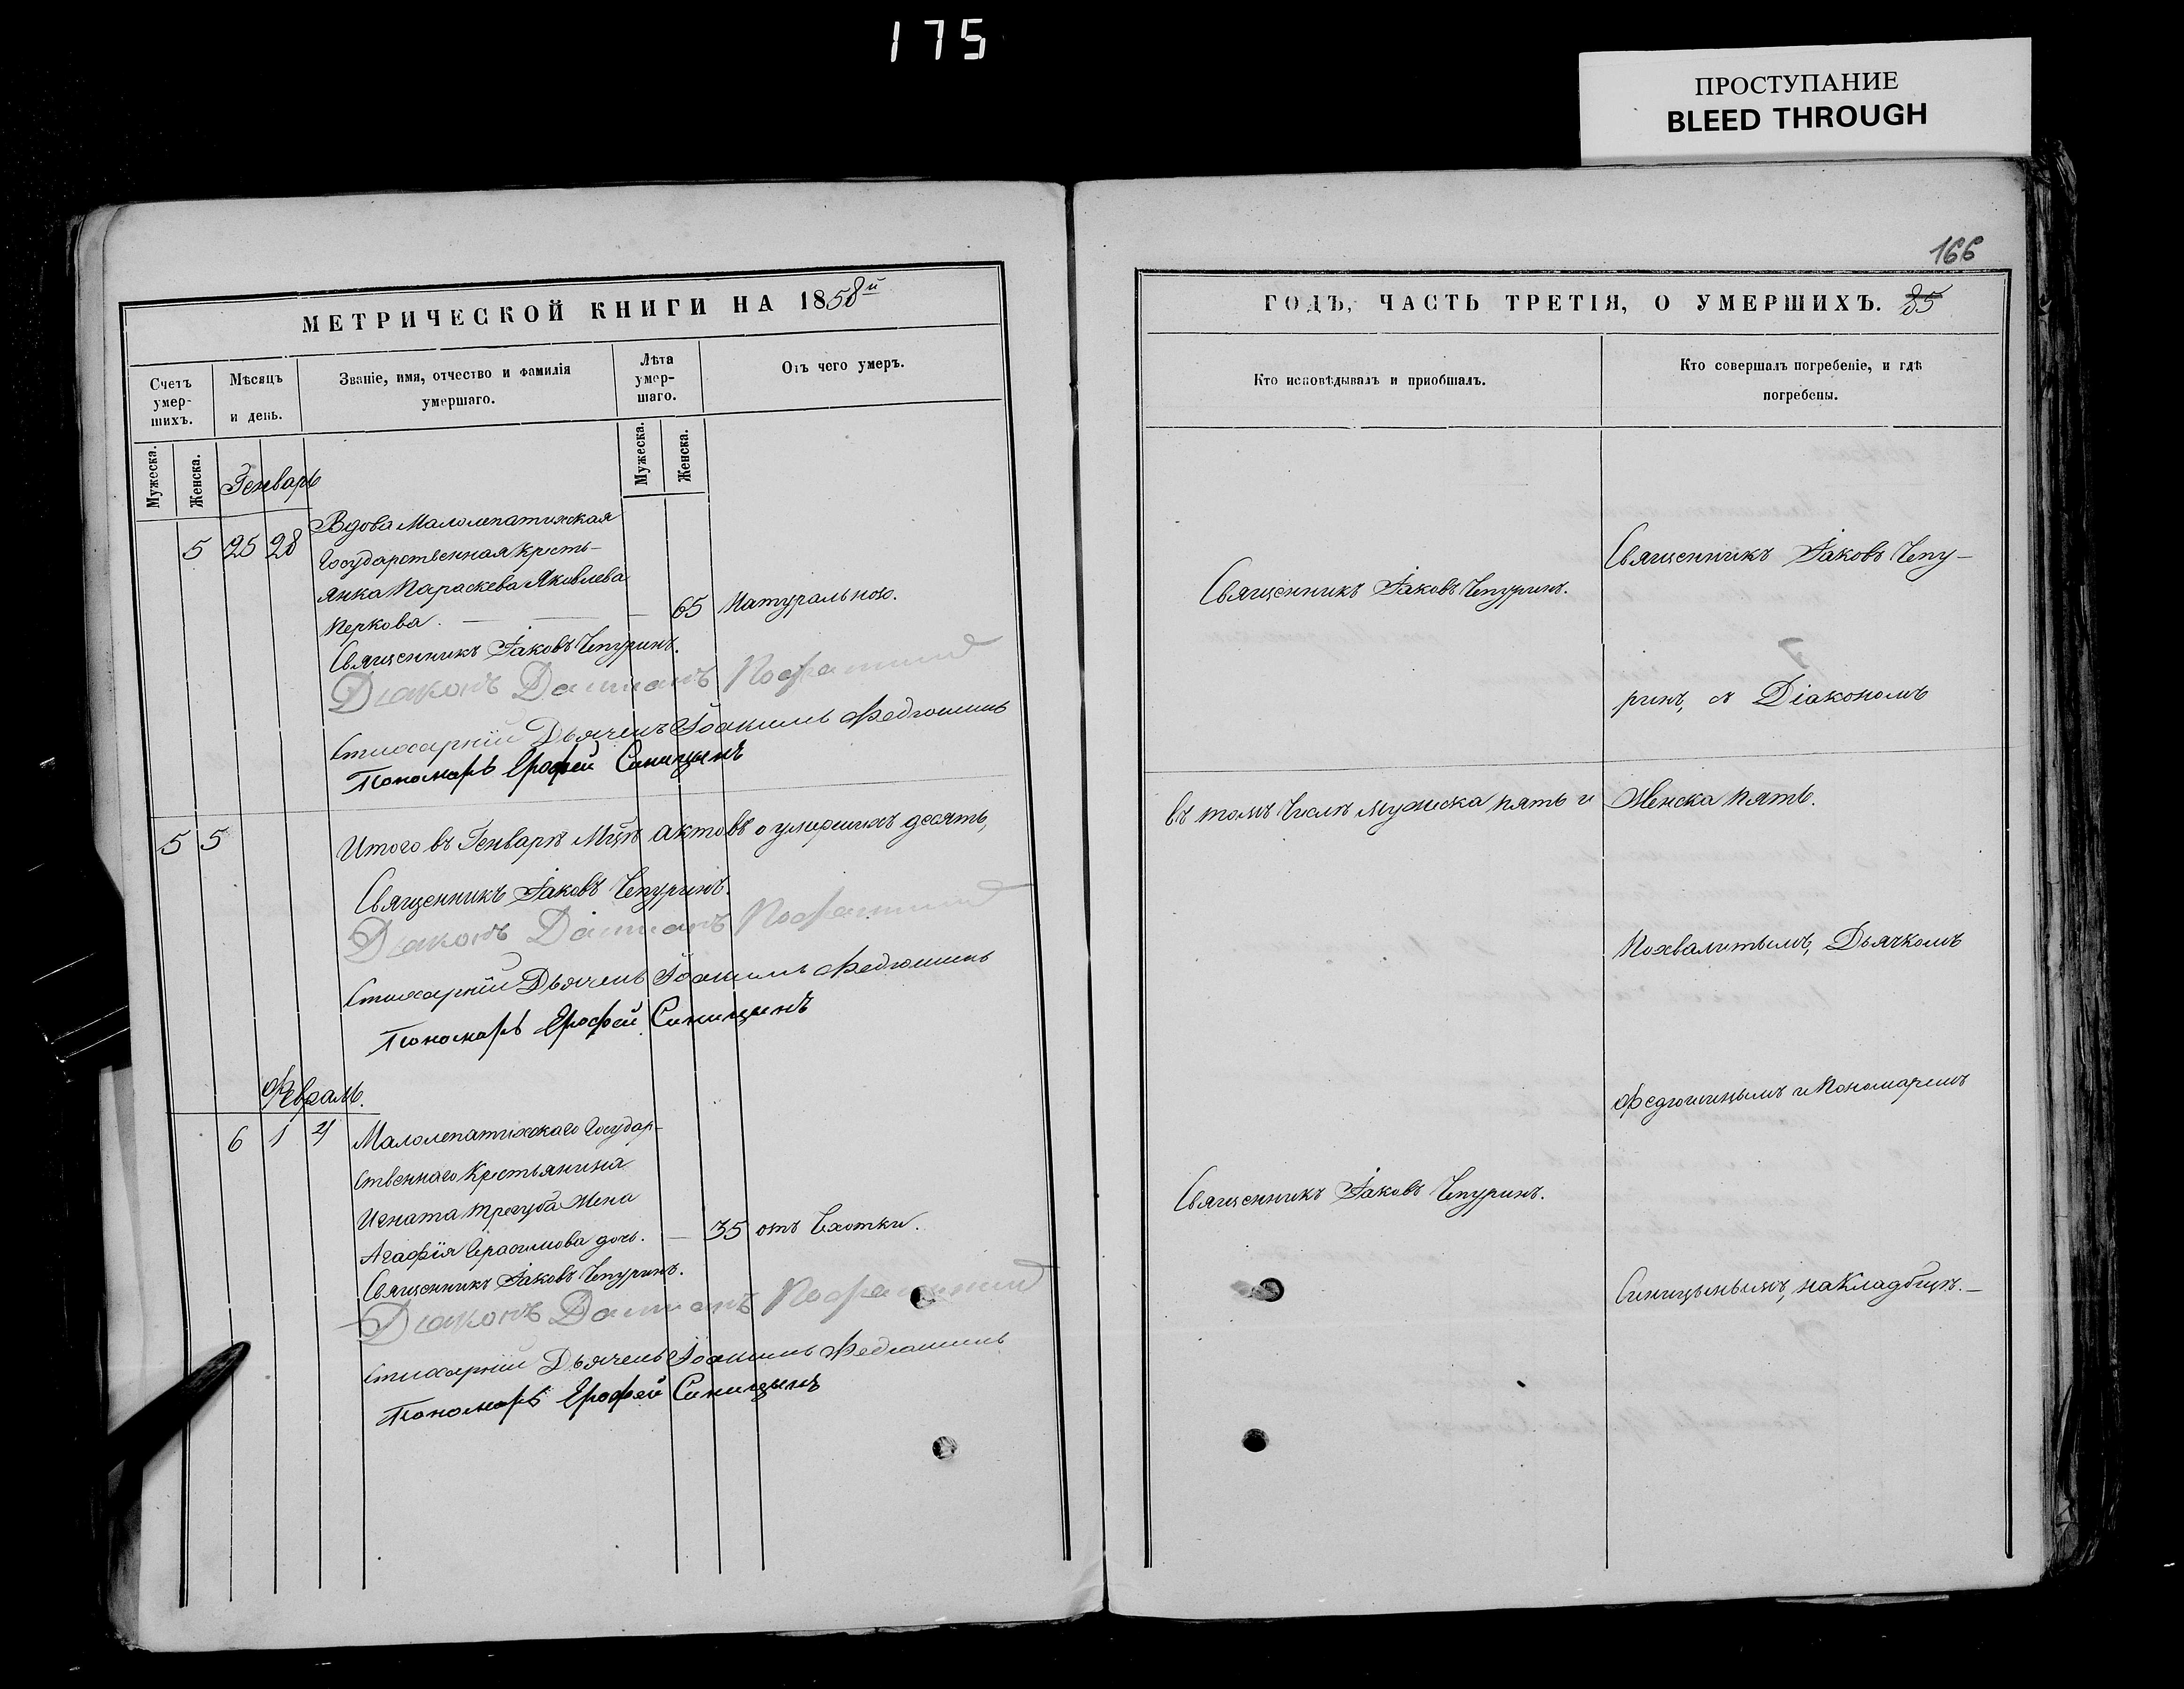 175
ПРОСТУПАНИЕ
BLEED THROUGH
МЕТРИЧЕСКОЙ КНИГИ НА 1858й
Счетъ умер-шихъ.
Мѣсяцъ и день.
Званіе, имя, отчество и фамилія умершаго.
Лѣта умер-шаго.
Отъ чего умеръ.
Мужеска.
Женска.
Мужеска.
Женска.
Генварь
5 25 28 Вдова Малолепатихская
Государственная кресть-
янка Параскева Яковлева
Перкова. — 65 Натурально.
Священникъ Іаковъ Чепуринъ.
Діаконъ Даміанъ
Стихарній Дьячекъ Іоакимъ Федюшинъ
Пономарь Ерофей Синицынъ
5 5 Итого въ Генварѣ Мцѣ актовъ о умершихъ десять,
Священникъ Іаковъ Чепуринъ.
Діаконъ Даміанъ
Стихарній Дьячекъ Іоакимъ Федюшинъ
Пономарь Ерофей Синицынъ
Февраль.
6 1 4 Малолепатихскаго Государ-
ственнаго Крестьянина
Игната Трегуба Жена
Агафія Герасимова дочь. — 35 отъ Чахотки.
Священникъ Іаковъ Чепуринъ.
Діаконъ Даміанъ
Стихарній Дьячекъ Іоакимъ Федюшинъ
Пономарь Ерофей Синицынъ
166
ГОДЪ, ЧАСТЬ ТРЕТІЯ, О УМЕРШИХЪ. 85
Кто исповѣдывалъ и пріобщалъ.
Кто совершалъ погребеніе, и гдѣ
погребены.
Священникъ Іаковъ Чепу-
Священникъ Іаковъ Чепуринъ.
ринъ, съ Діакономъ
въ томъ Числѣ мужеска пять и Женска пять.
Похвалитымъ, Дьячкомъ
Федюшинымъ и Пономаремъ
Священникъ Іаковъ Чепуринъ.
Синицынымъ, на Кладбищѣ. —